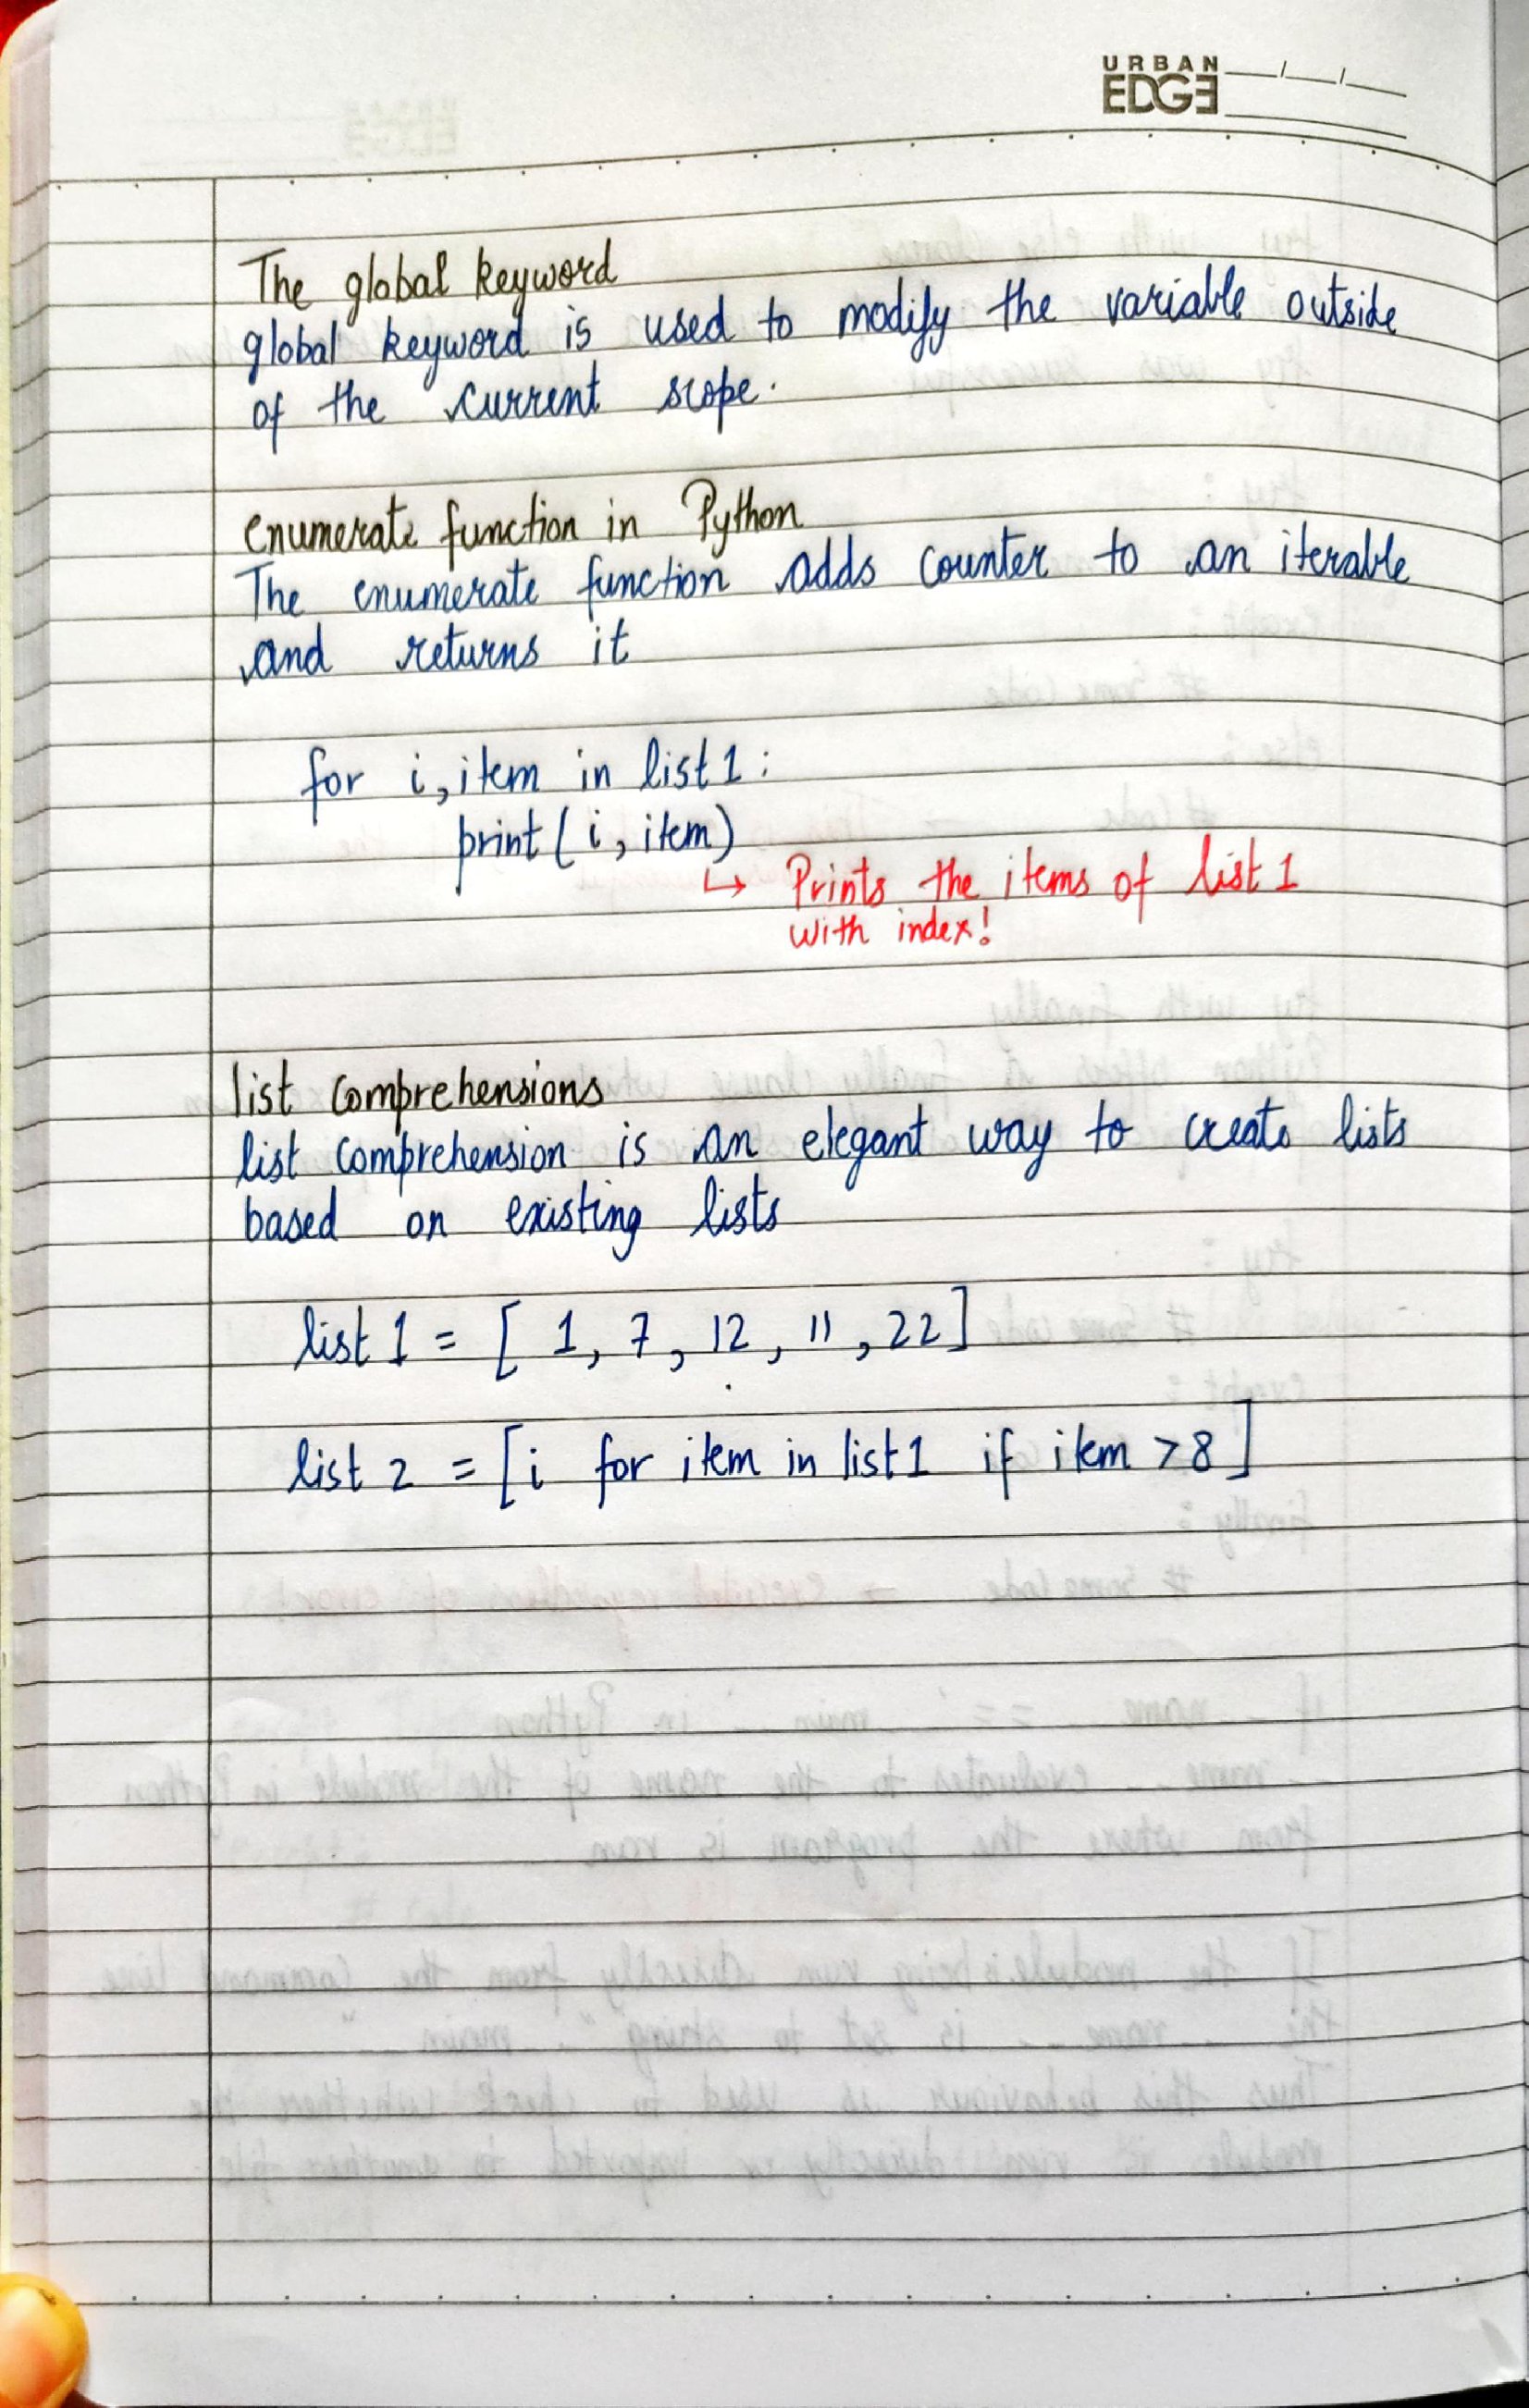 URBAN
EDGE
The global keyword
global keyword is used to modify the variable outside
of the current scope.
enumerate function in Python
The enumerate function adds counter to an iterable
and returns it
for i, item in list 1 :
print ( i , item)
↳ Prints the items of list 1
with index!
list comprehensions
list comprehension is an elegant way to create lists
based on existing lists
list 1 = [ 1, 7, 12, 11, 22]
list 2 = [i for item in list 1 if item > 8 ]